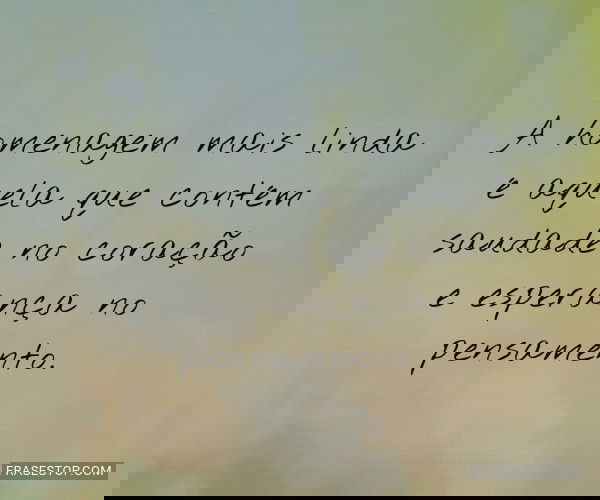 A homenagem mais linda
é aquela que contém
saudade no coração
e esperança no
pensamento.
FRASESTOP.COM